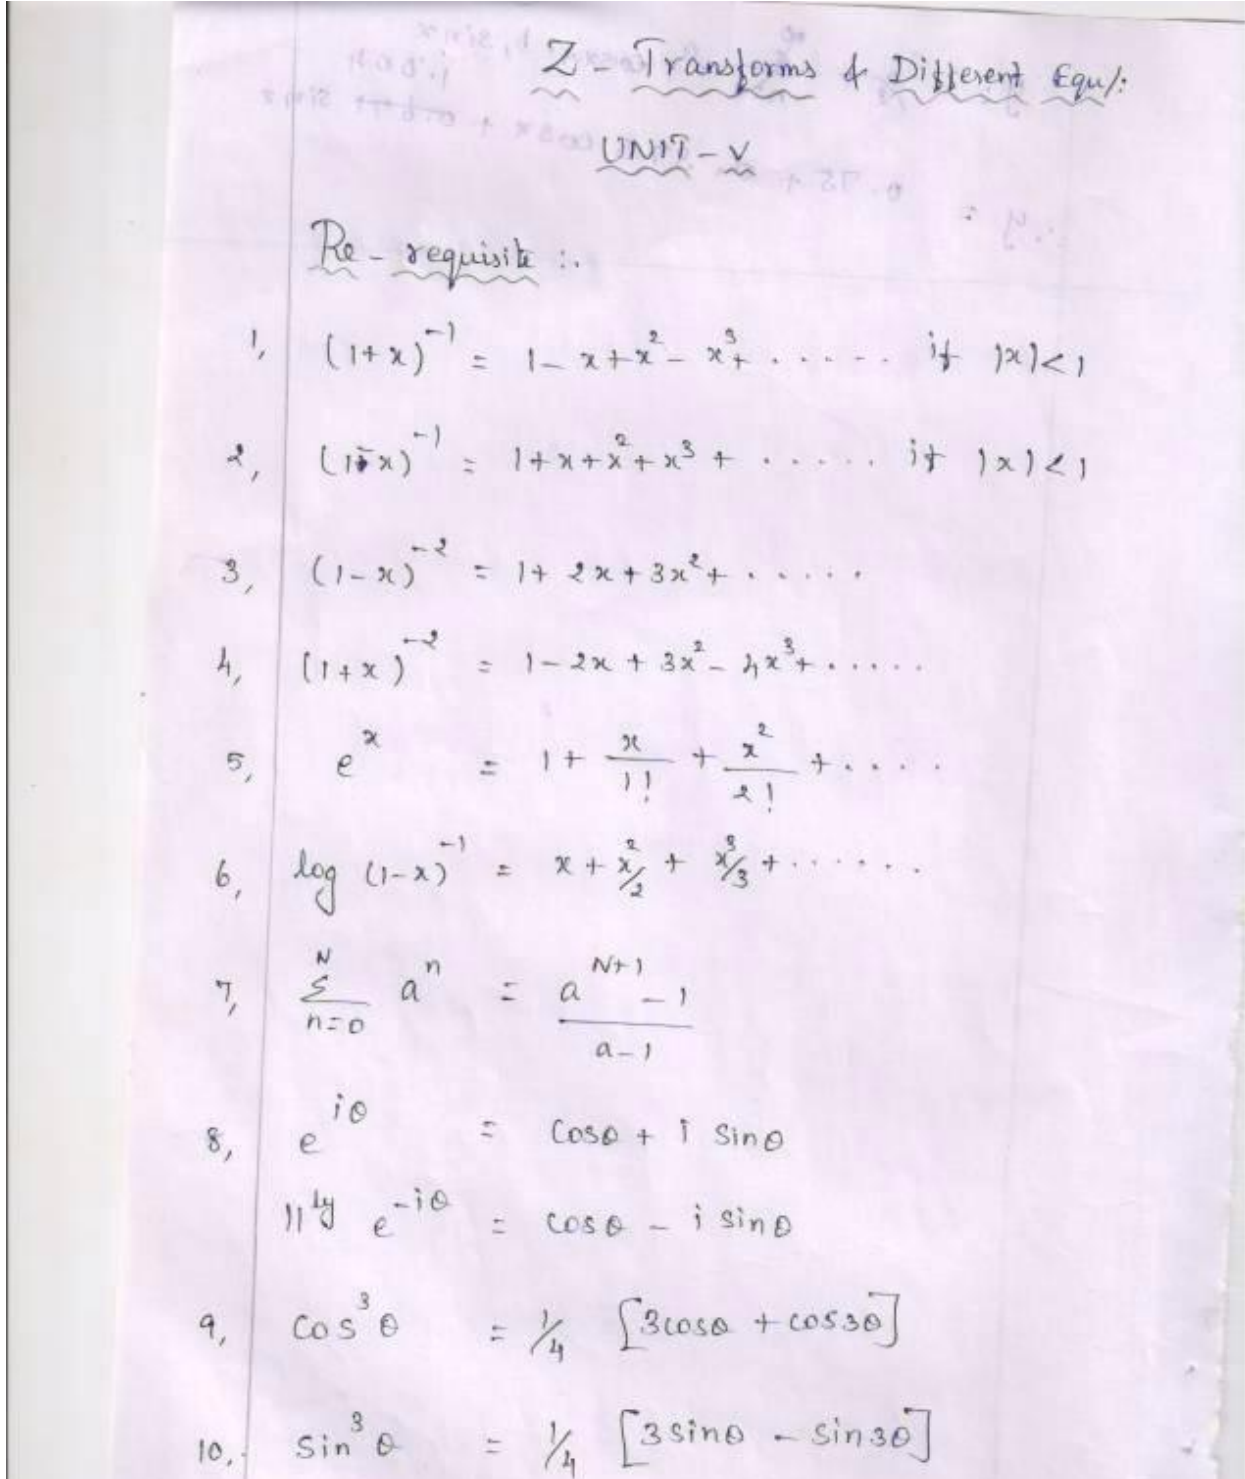 Z - Transforms & Different Equ/:
UNIT - V
Re - requisite :.
1, (1+x)^-1 = 1 - x + x^2 - x^3 + ..... if |x| < 1
2, (1-x)^-1 = 1 + x + x^2 + x^3 + ..... if |x| < 1
3, (1-x)^-2 = 1 + 2x + 3x^2 + .....
4, (1+x)^-2 = 1 - 2x + 3x^2 - 4x^3 + .....
5, e^x = 1 + x/1! + x^2/2! + ....
6, log (1-x)^-1 = x + x^2/2 + x^3/3 + ......
7, Σ_{n=0}^{N} a^n = (a^{N+1} - 1)/(a - 1)
8, e^{iθ} = Cosθ + i Sinθ
||^ly e^{-iθ} = cosθ - i sinθ
9, Cos^3 θ = 1/4 [3cosθ + cos3θ]
10, Sin^3 θ = 1/4 [3sinθ - sin3θ]